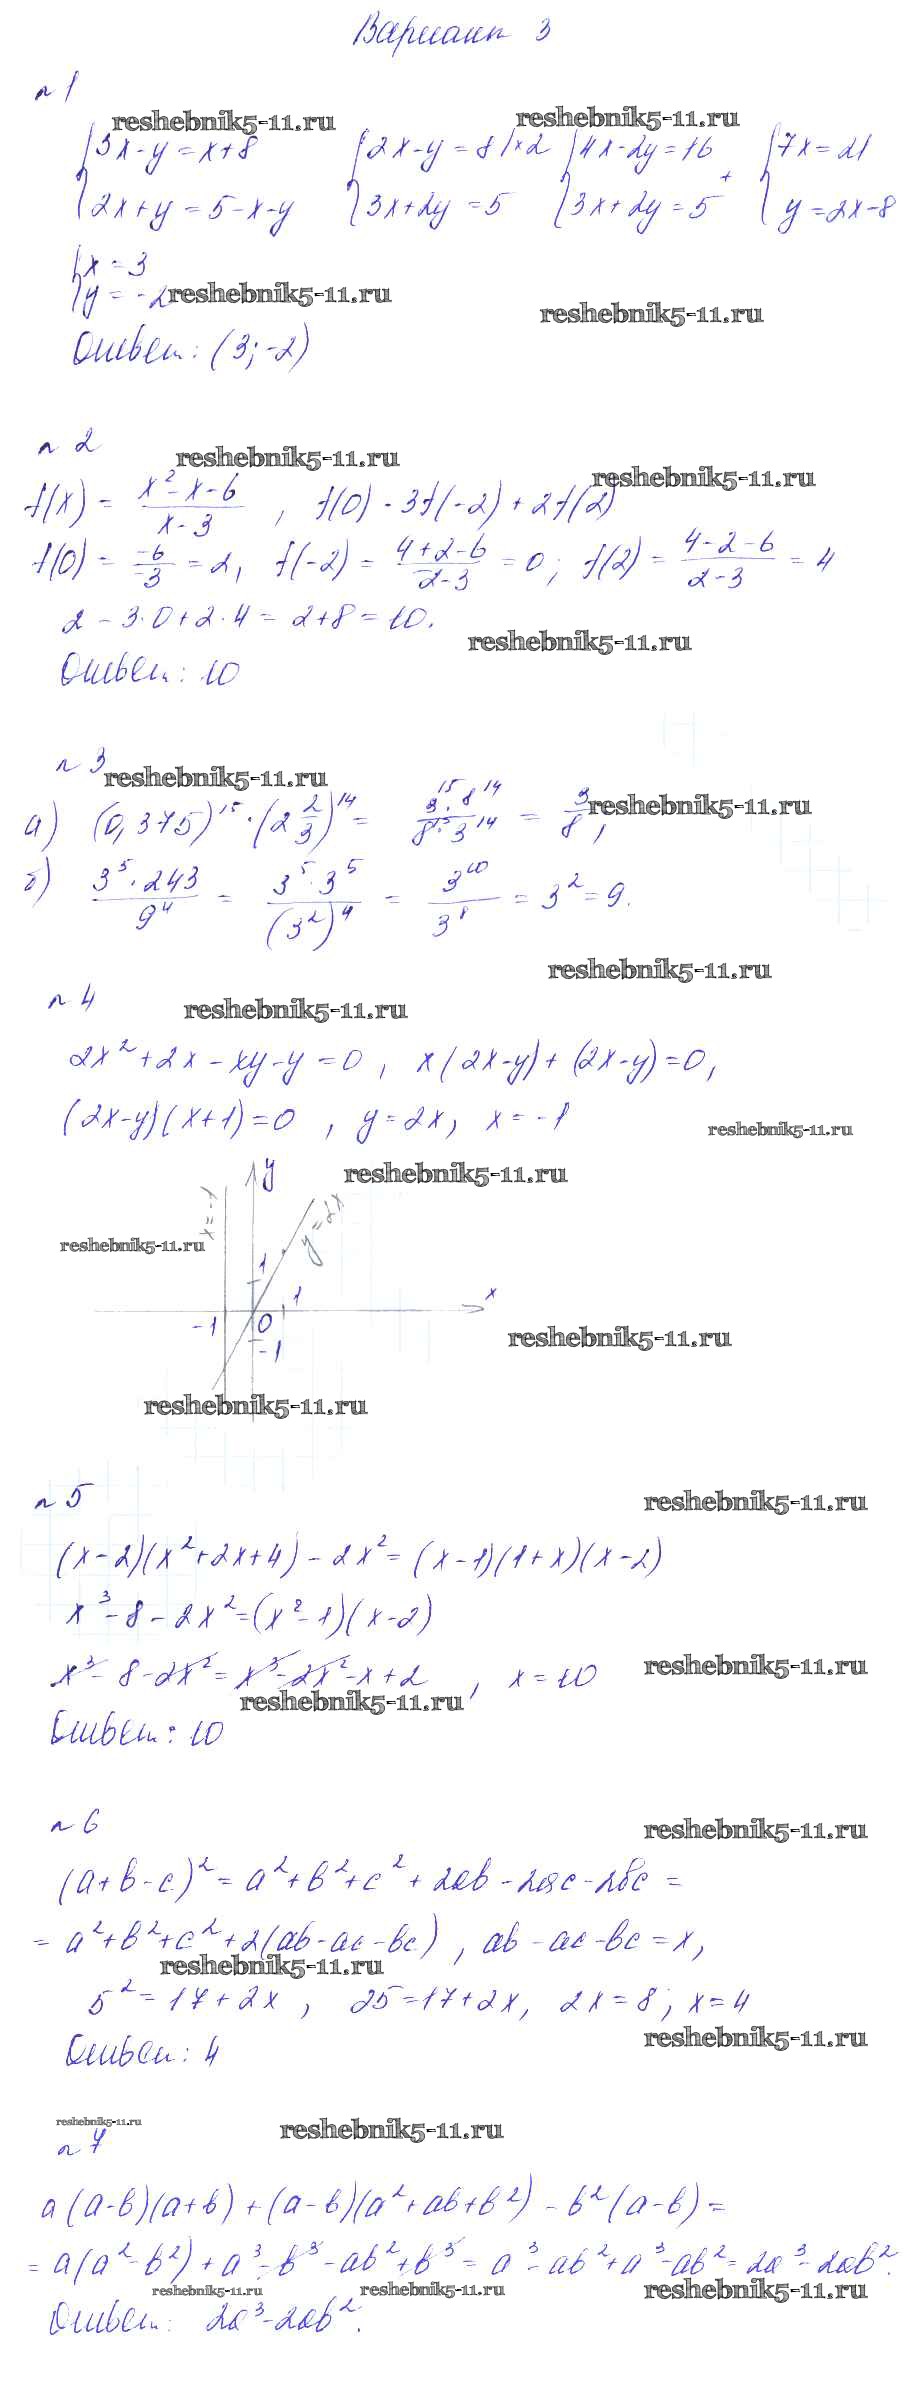 Вариант 3
n 1
reshebnik5-11.ru reshebnik5-11.ru
{3x-y=x+8 {2x-y=8 |×2 {4x-2y=16 + {7x=21
{2x+y=5-x-y {3x+2y=5 {3x+2y=5 {y=2x-8
{x=3
{y=-2 reshebnik5-11.ru reshebnik5-11.ru
Ответ: (3; -2)
n 2
reshebnik5-11.ru reshebnik5-11.ru
f(x) = (x²-x-6)/(x-3) , f(0) - 3f(-2) + 2f(2)
f(0) = -6/-3 = 2, f(-2) = (4+2-6)/(-2-3) = 0; f(2) = (4-2-6)/(2-3) = 4
2 - 3·0 + 2·4 = 2+8 = 10.
reshebnik5-11.ru
Ответ: 10
n 3
reshebnik5-11.ru reshebnik5-11.ru
а) (0,375)¹⁵ · (2 2/3)¹⁴ = (3¹⁵·8¹⁴)/(8¹⁵·3¹⁴) = 3/8,
б) (3⁵·243)/9⁴ = (3⁵·3⁵)/(3²)⁴ = 3¹⁰/3⁸ = 3² = 9.
reshebnik5-11.ru
n 4 reshebnik5-11.ru
2x²+2x-xy-y=0 , x(2x-y)+(2x-y)=0,
(2x-y)(x+1)=0 , y=2x, x=-1
reshebnik5-11.ru
reshebnik5-11.ru
y
x=-1
y=2x
reshebnik5-11.ru
1
1
x
-1
0
-1
reshebnik5-11.ru
reshebnik5-11.ru
n 5
reshebnik5-11.ru
(x-2)(x²+2x+4)-2x²=(x-1)(1+x)(x-2)
x³-8-2x²=(x²-1)(x-2)
x³-8-2x²=x³-2x²-x+2 , x=10
reshebnik5-11.ru
reshebnik5-11.ru
Ответ: 10
n 6
reshebnik5-11.ru
(a+b-c)²=a²+b²+c²+2ab-2ac-2bc=
=a²+b²+c²+2(ab-ac-bc) , ab-ac-bc=x,
reshebnik5-11.ru
5²=17+2x , 25=17+2x, 2x=8; x=4
reshebnik5-11.ru
Ответ: 4
reshebnik5-11.ru reshebnik5-11.ru
n 7
a(a-b)(a+b)+(a-b)(a²+ab+b²)-b²(a-b)=
=a(a²-b²)+a³-b³-ab²+b³=a³-ab²+a³-ab²=2a³-2ab².
reshebnik5-11.ru reshebnik5-11.ru reshebnik5-11.ru
Ответ: 2a³-2ab².